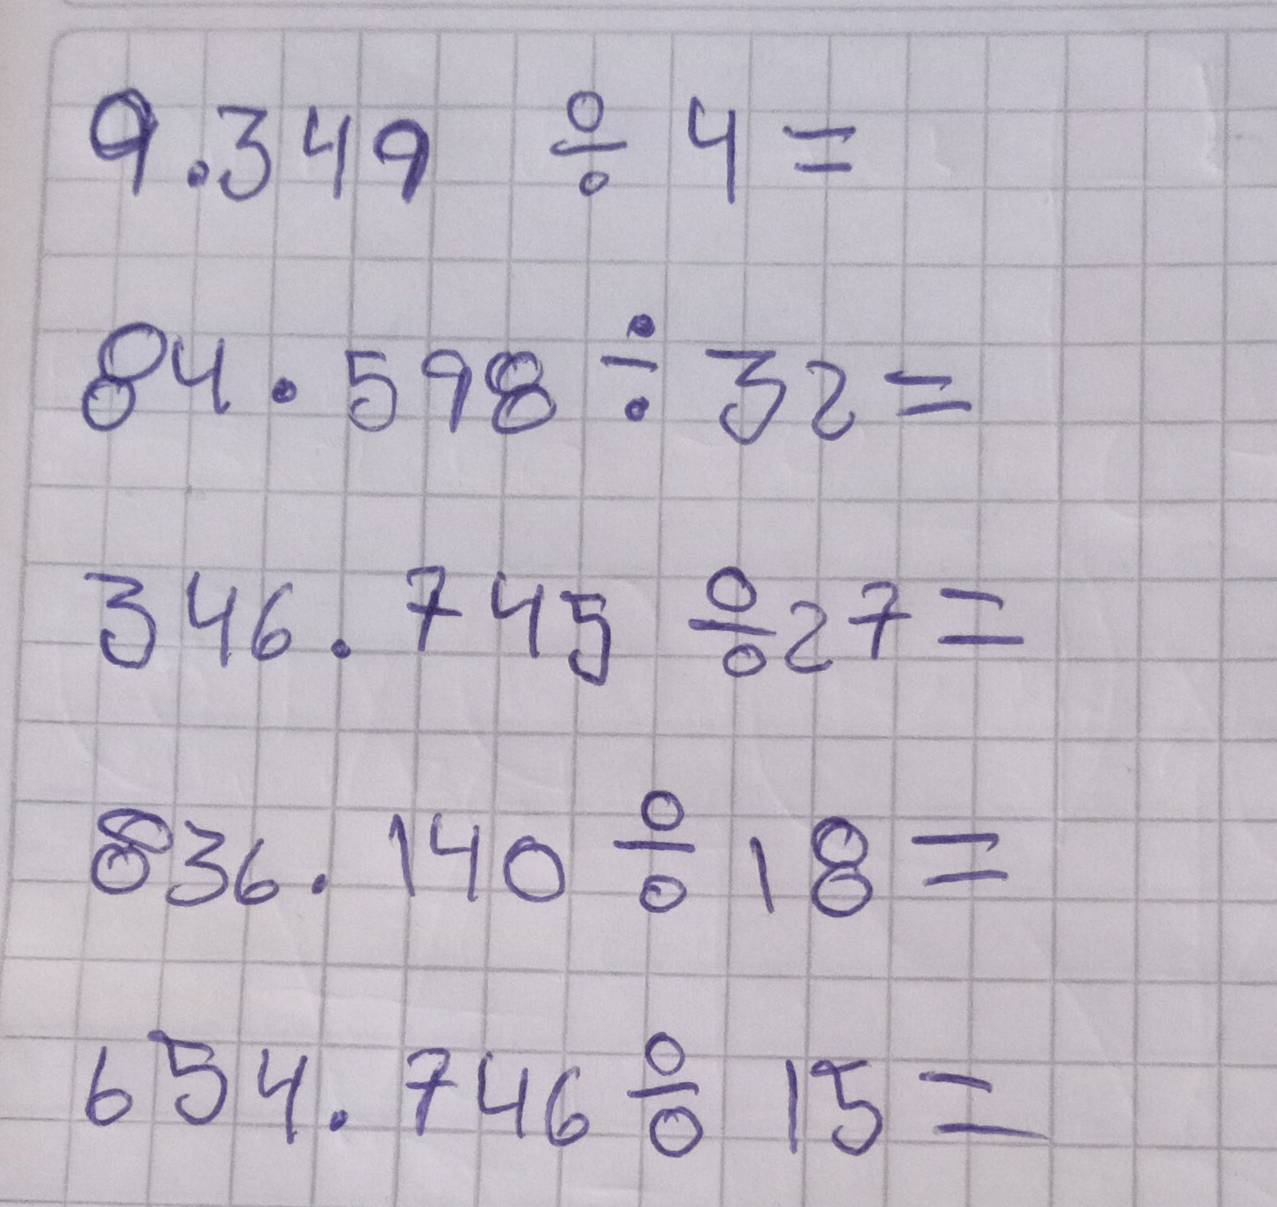 9.349 ÷ 4 =
84.598 ÷ 32 =
346.745 ÷ 27 =
836.140 ÷ 18 =
654.746 ÷ 15 =